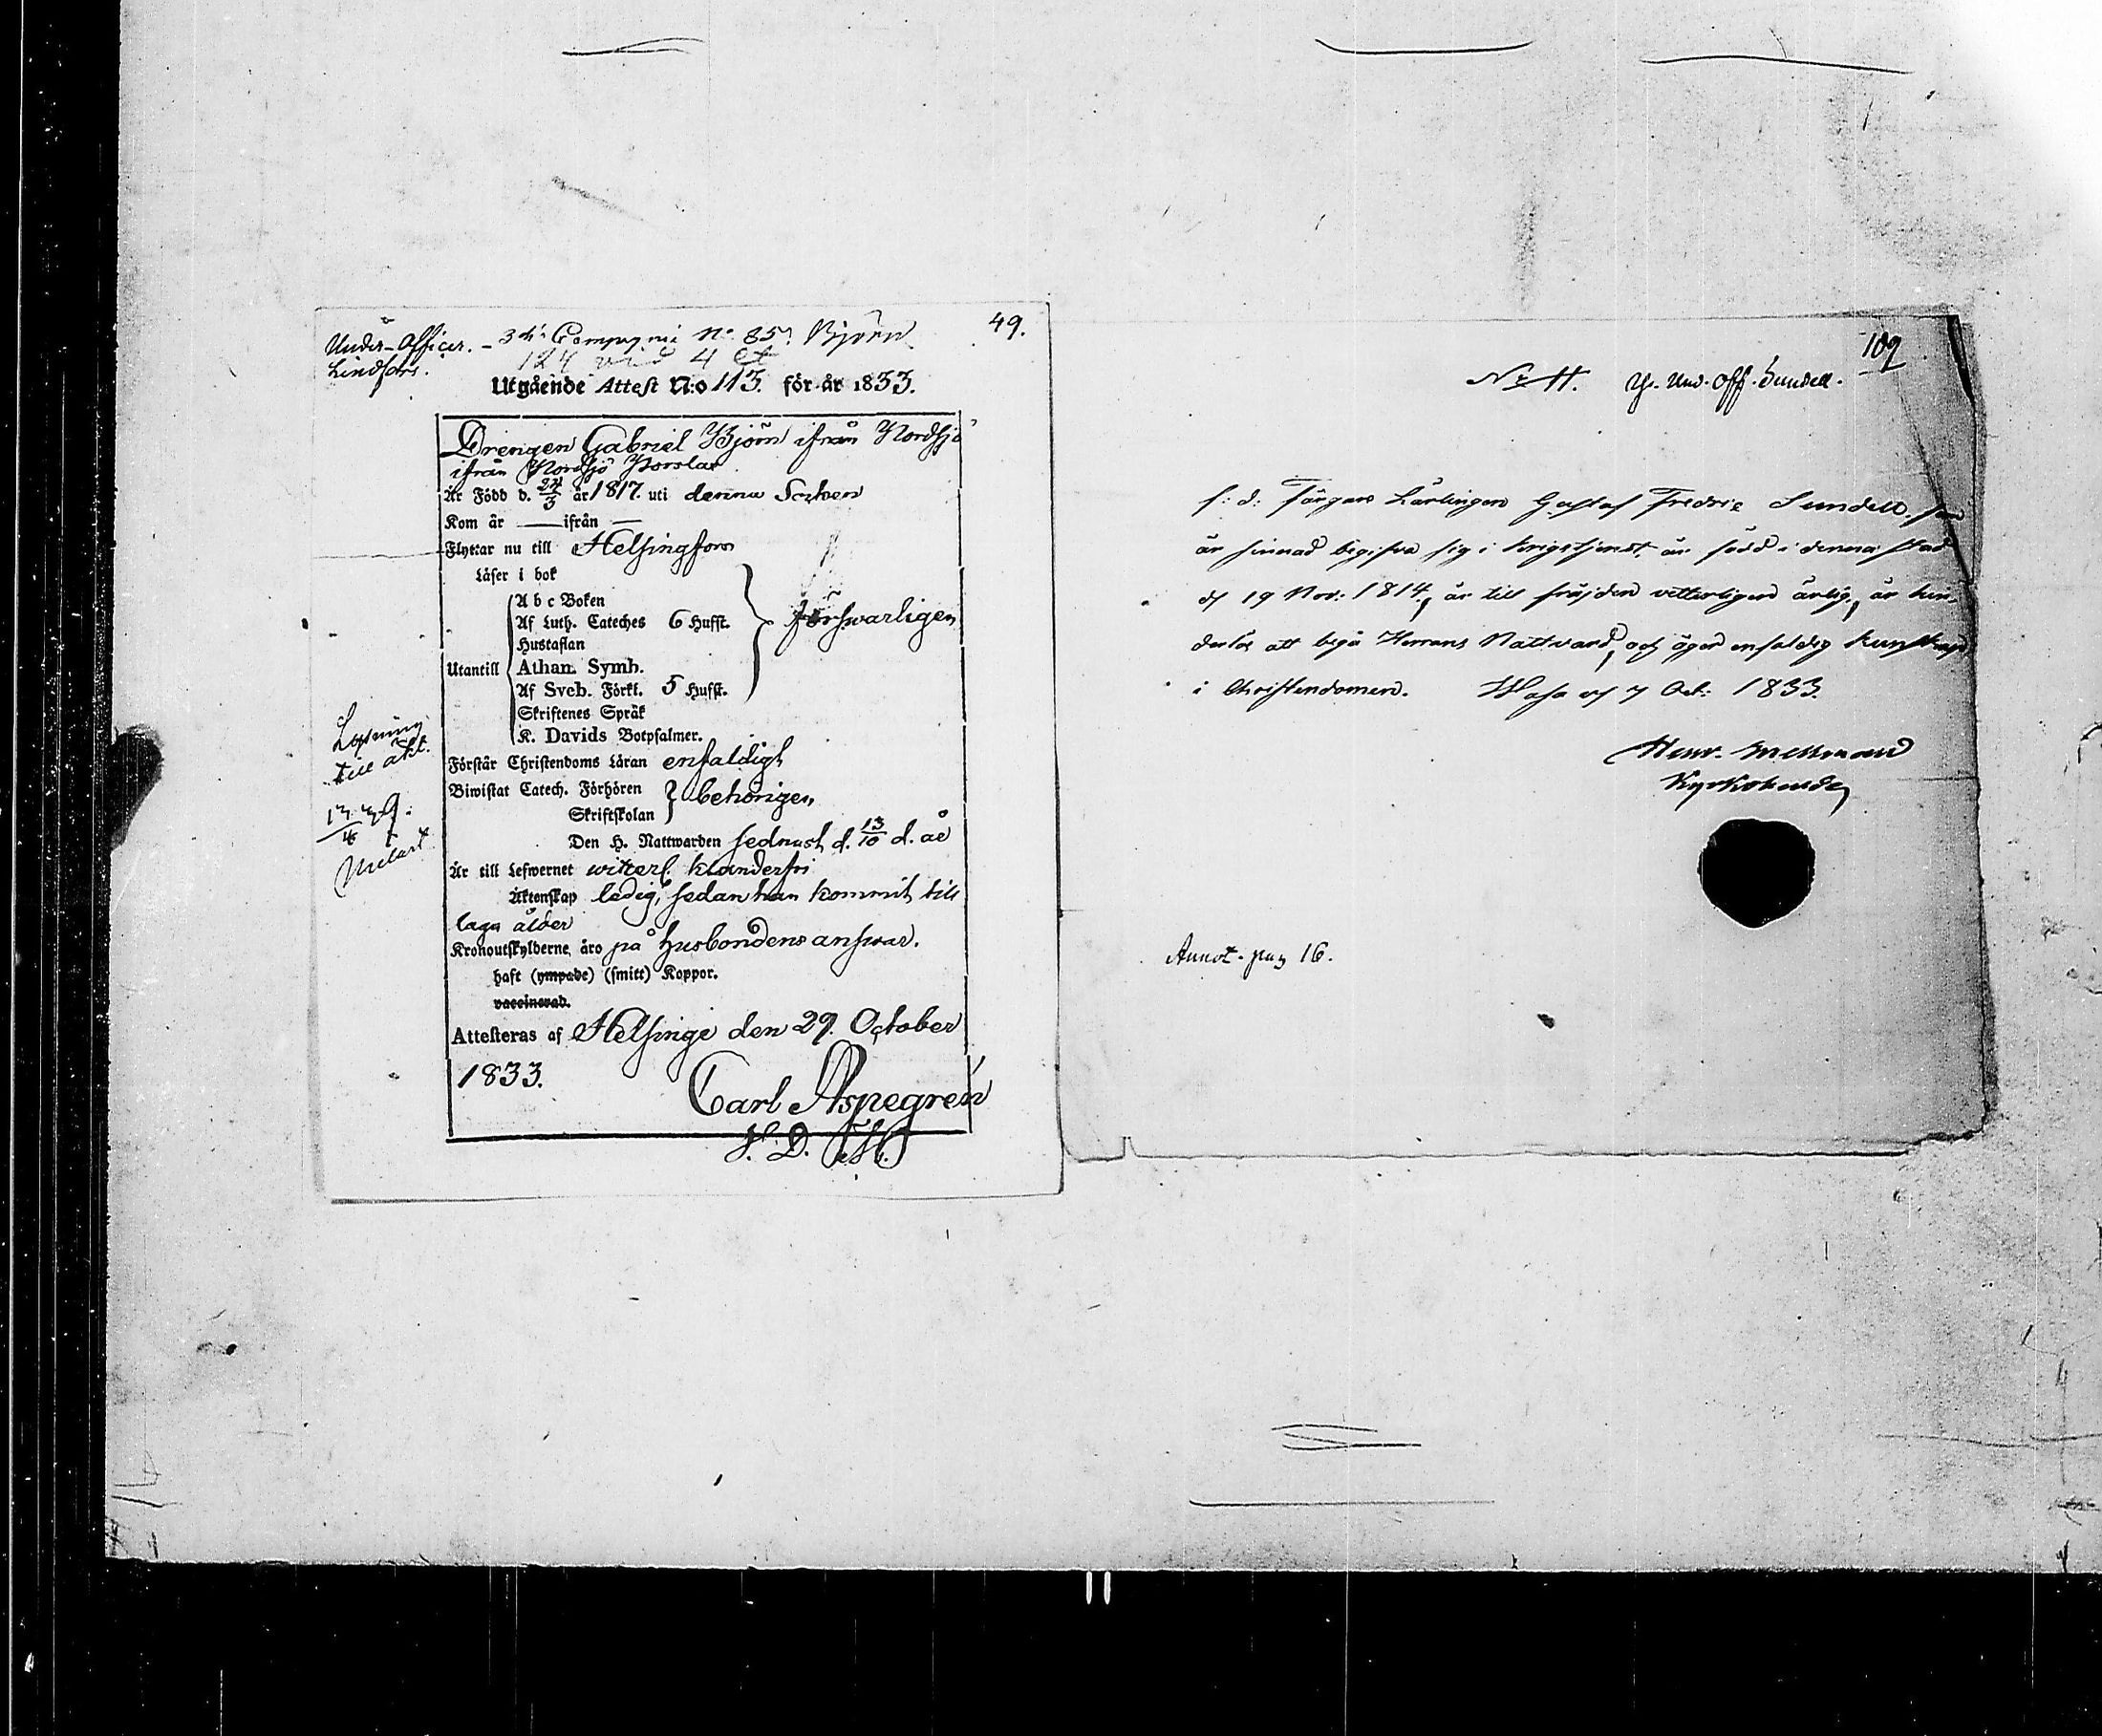 49.
Under-Officer. - 3die Compagnie No 85. Björn
Lindfors.
124 4
Utgående Attest N:o 113. för år 1833.
Drengen Gabriel Björn ifrån Nordsjö
ifrån Nordsjö
Är Född d. 24/3 år 1817. uti denna Socken
Kom år — ifrån —
Flyttar nu till Helsingfors
Läser i bok
A b c Boken
Af Luth. Cateches 6 Hufst.
Hustaflan
Utantill Athan. Symb.
Af Sveb. Förkl. 5 Hufst.
Skriftenes Språk
K. Davids Botpsalmer.
försvarligen
Förstår Christendoms Läran enfaldigt
Biwistat Catech. Förhören
Skriftskolan
behörigen
Den H. Nattwarden sednast d. 13/10 d. år
Är till Lefwernet witterl. klanderfri
Äktenskap ledig, sedan han kommit till
laga ålder
Kronoutskylderne äro på husbondens answar.
haft (ympade) (smitt) Koppor.
vaccinerad.
Attesteras af Helsinge den 29. October
1833.
Carl Aspegrén
Lysning
till äkt.
Melart
109
No 11. Und. Off. Sundell.
f: d: Färgare Lärlingen Gustaf Fredric Sundell, som
är sinnad begifva sig i krigstjenst, är född i denna stad
d 19 Nov: 1814, är till fräjden vetterligen ärlig, är hin-
derlös att begå Herrans Nattvard, och äger enfaldig kunskap
i Christendomen. Wasa d 7 Oct: 1833.
Henr.
Kyrkoherde
Annot. pag 16.